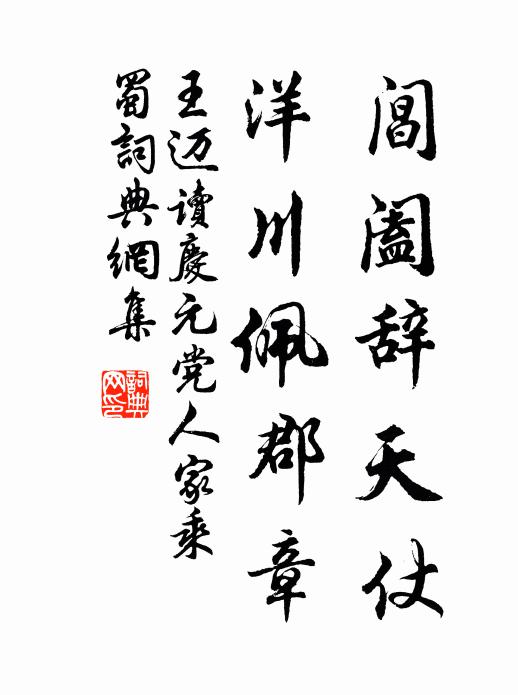 阊阖辞天仗
洋川佩郡章
王迈读慶元党人家乘
蜀詞典網集
詞典网印